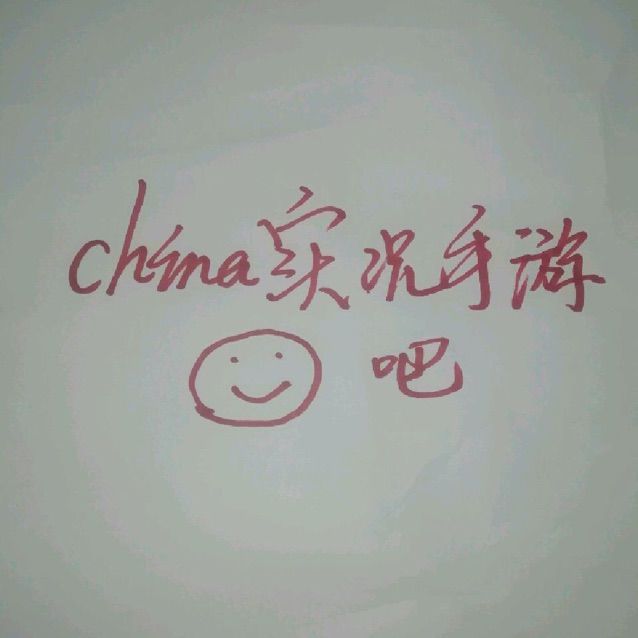 china实况手游
吧